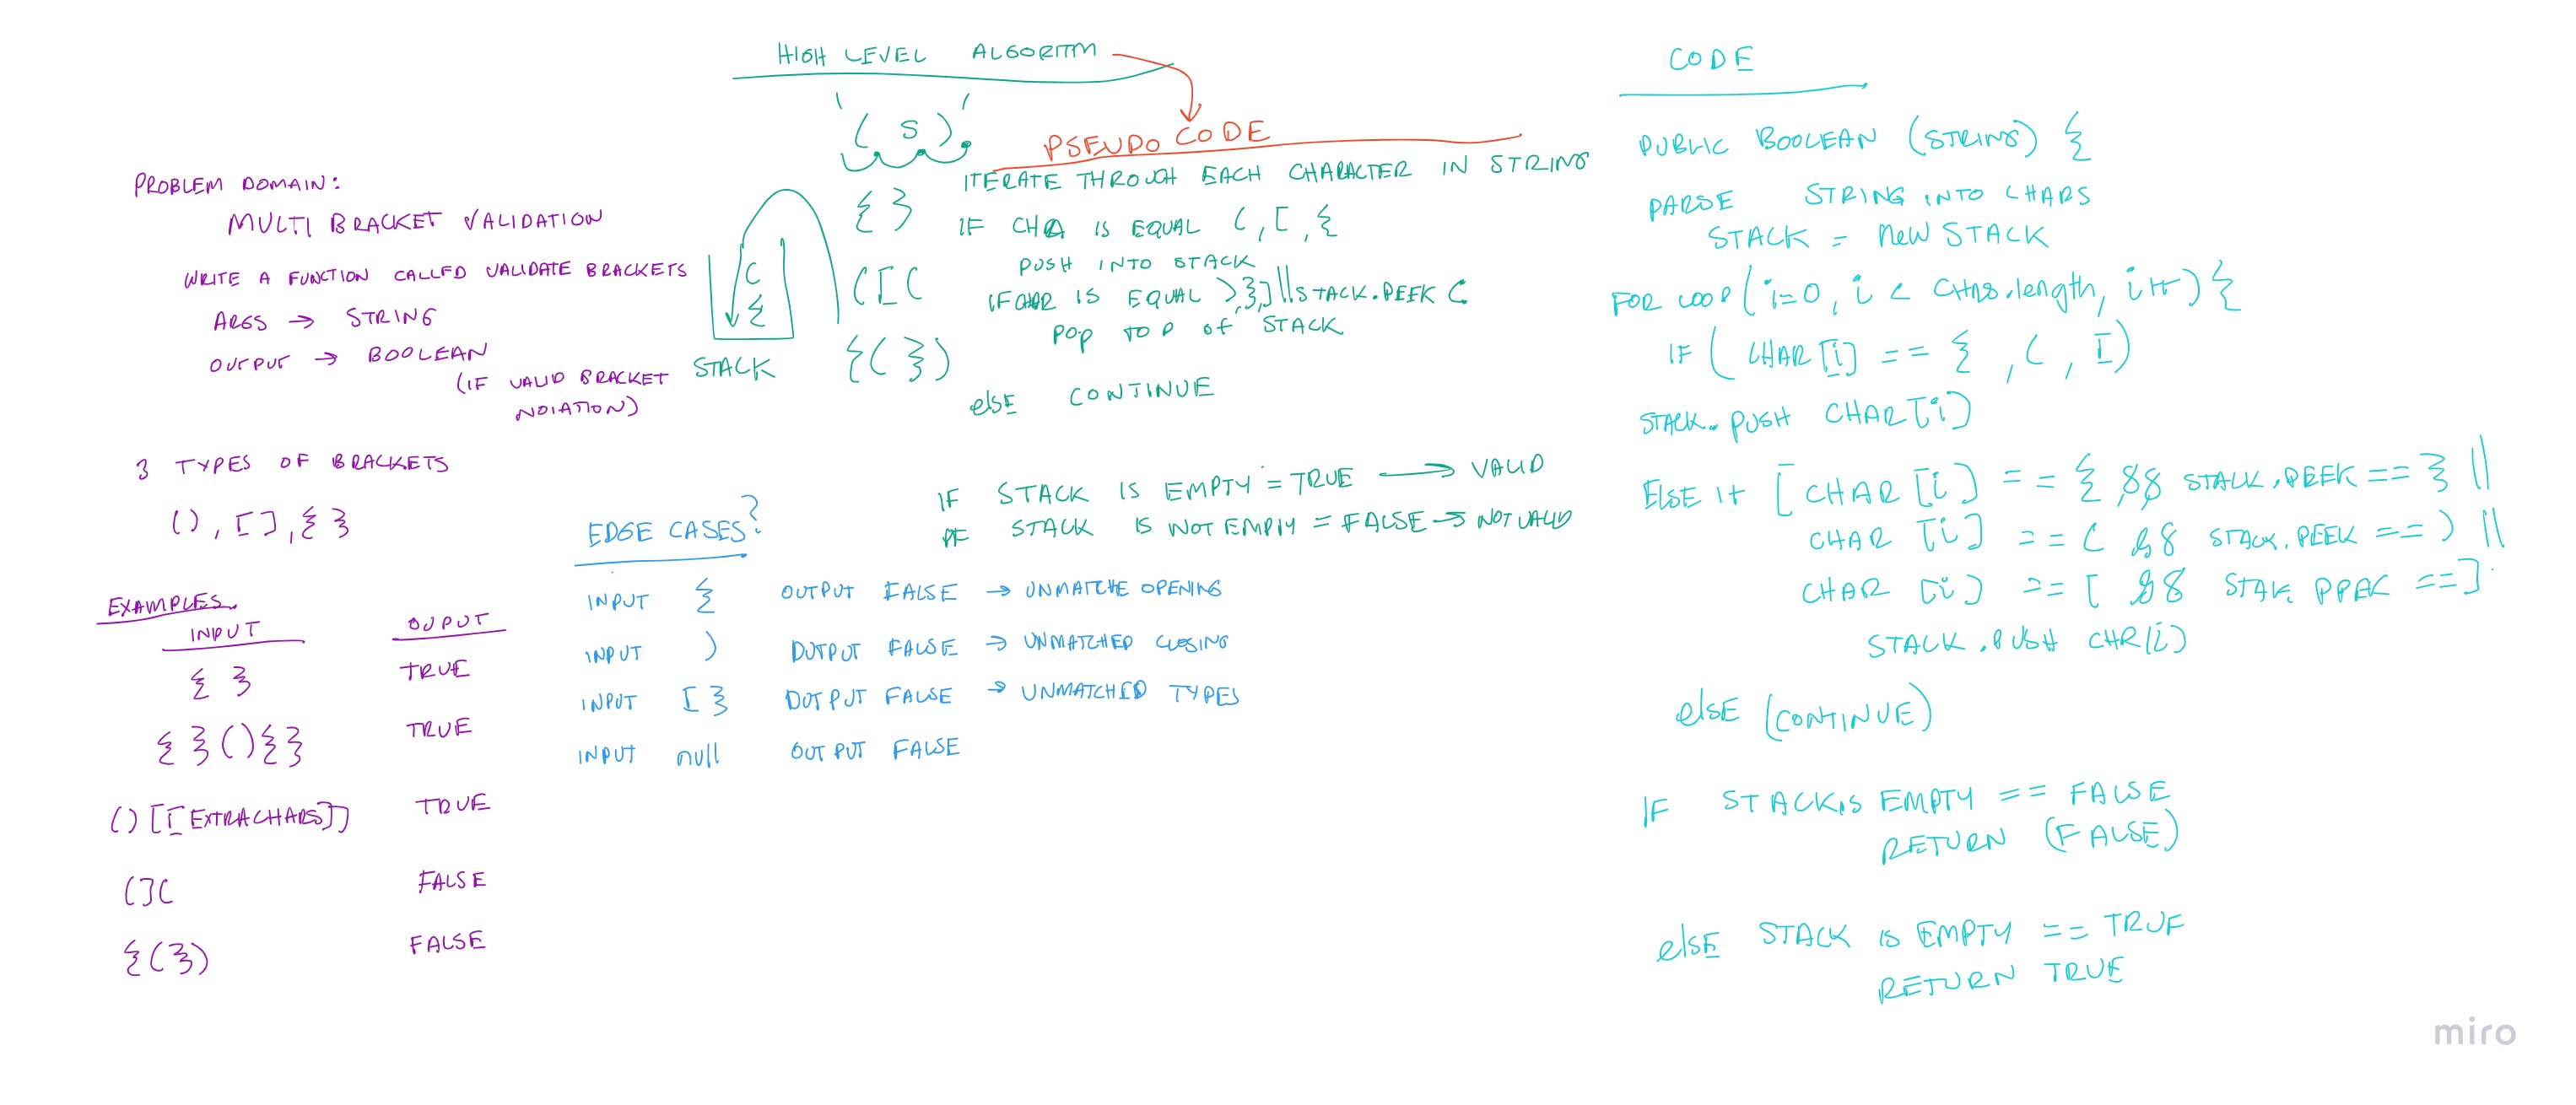 PROBLEM DOMAIN:
MULTI BRACKET VALIDATION
WRITE A FUNCTION CALLED VALIDATE BRACKETS
ARGS → STRING
OUTPUT → BOOLEAN
(IF VALID BRACKET
NOTATION)
3 TYPES OF BRACKETS
(), [], { }
EXAMPLES
INPUT OUPUT
{ } TRUE
{ } ( ) { } TRUE
() [[EXTRACHARS]] TRUE
(](  FALSE
{(}) FALSE
HIGH LEVEL ALGORITM
' ( S ) '
{ }
([(
{(})
(
{
STACK
PSEUDO CODE
ITERATE THROUGH EACH CHARACTER IN STRING
IF CHA IS EQUAL (, [, {
PUSH INTO STACK
IF CHAR IS EQUAL ),},] || STACK.PEEK (
POP TOP OF STACK
else CONTINUE
IF STACK IS EMPTY = TRUE → VALID
IF STACK IS NOT EMPTY = FALSE → NOT VALID
EDGE CASES?
INPUT { OUTPUT FALSE → UNMATCHE OPENING
INPUT ) OUTPUT FALSE → UNMATCHED CLOSING
INPUT [ } OUTPUT FALSE → UNMATCHED TYPES
INPUT null OUTPUT FALSE
CODE
PUBLIC BOOLEAN (STRING) {
PARSE STRING INTO CHARS
STACK = new STACK
FOR LOOP (i=0, i < CHARS.length, i++) {
IF ( CHAR[i] == { , ( , [ )
STACK. PUSH CHAR[i]
ELSE IF [ CHAR [i] == { && STACK.PEEK == } ||
CHAR [i] == ( && STACK.PEEK == ) ||
CHAR [i] == [ && STAK. PPEK == ]
STACK.PUSH CHR(i)
else (CONTINUE)
IF STACK.IS EMPTY == FALSE
RETURN (FALSE)
else STACK IS EMPTY == TRUE
RETURN TRUE
miro